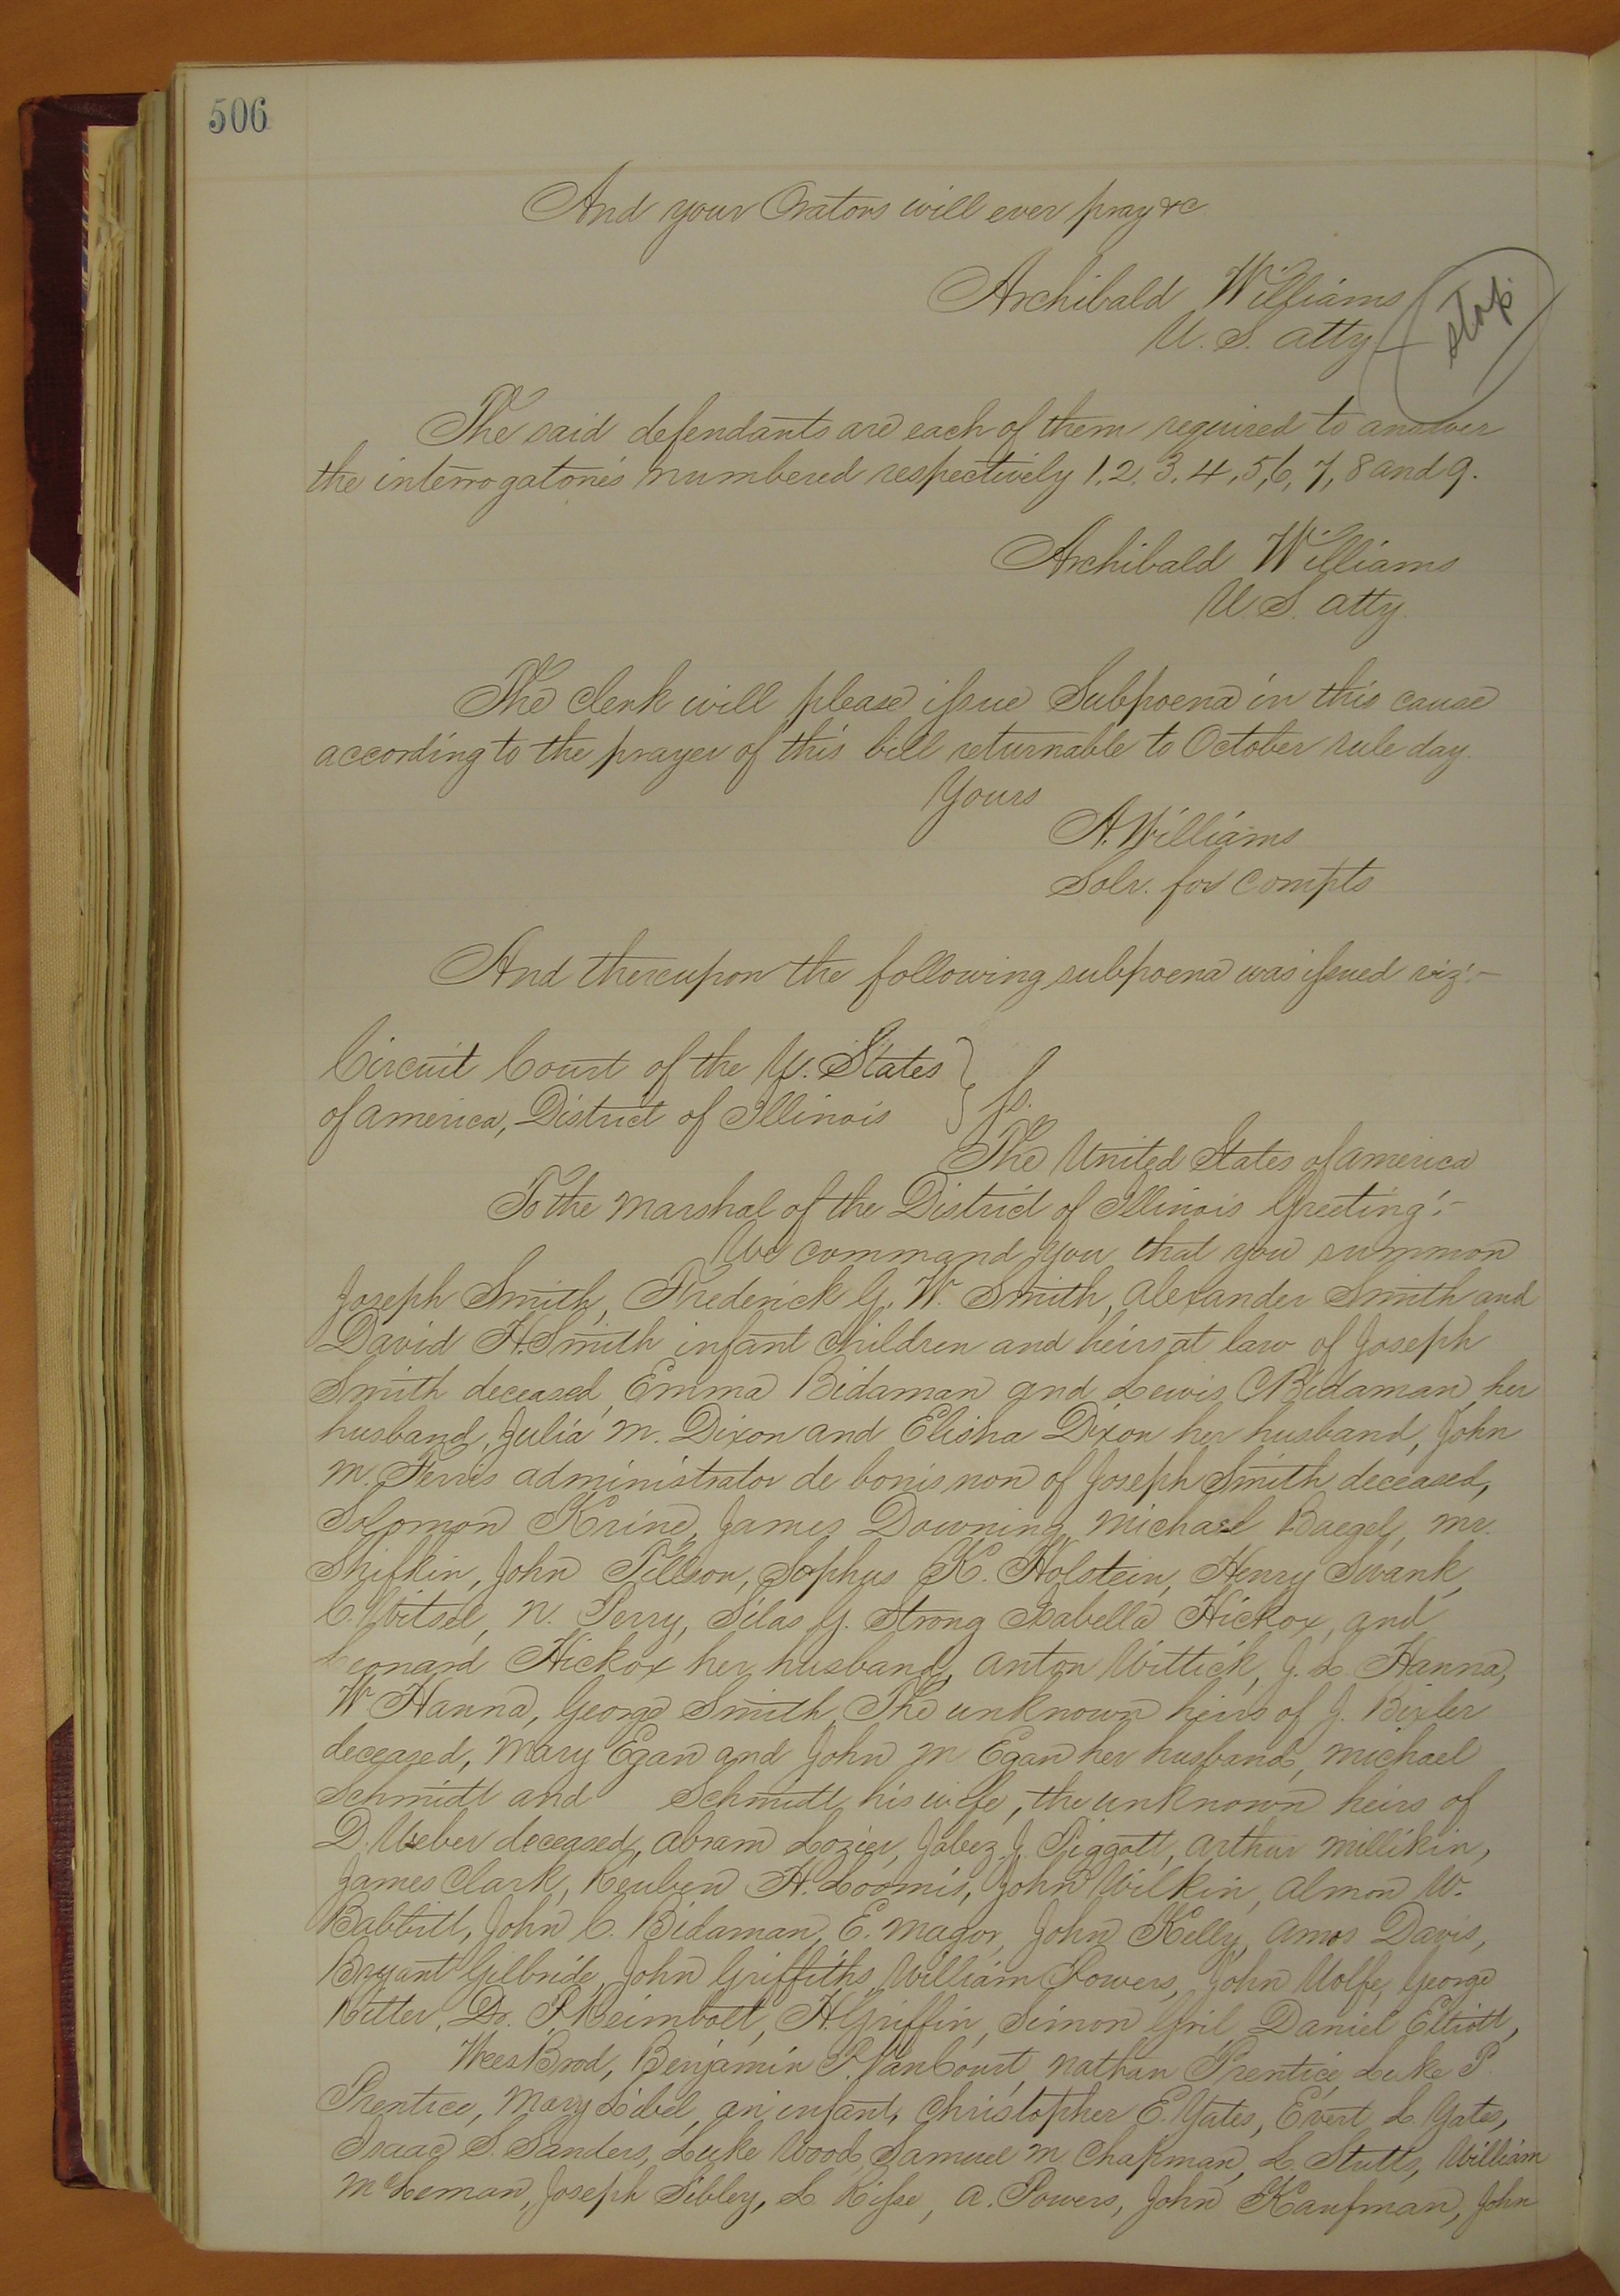 506
And your Orators will ever pray &c.
Archibald Williams
U. S. atty
stop.
The said defendants are each of them required to answer
the interrogatories numbered respectively 1, 2, 3, 4, 5, 6, 7, 8 and 9.
Archibald Williams
U. S. atty.
The Clerk will please issue Subpoena in this cause
according to the prayer of this bill returnable to October rule day.
Yours
A. Williams
Solr. for Compts
And thereupon the following subpoena was issued viz:-
Circuit Court of the U. States
of america, District of Illinois } ss.
The United States of america
To the Marshal of the District of Illinois Greeting:-
We command you that you summon
Joseph Smith, Frederick G. W. Smith, Alexander Smith and
David H. Smith infant children and heirs at law of Joseph
Smith deceased, Emma Bidaman and Lewis C Bidaman her
husband, Julia M. Dixon and Elisha Dixon her husband, John
M. Ferris administrator de bonis non of Joseph Smith deceased,
Solomon Krine, James Downing, Michael Baegel, Mr.
Shifkin, John Tillson, Sophus K. Holstein, Henry Swank,
C. Witsel, N. Perry, Silas G. Strong Isabella Hickox, and
Leonard Hickox her husband, Anton Wittick, J. L. Hanna,
W Hanna, George Smith, The unknown heirs of J. Bixler
deceased, Mary Egan and John M Egan her husband, Michael
Schmidt and Schmidt his wife, the unknown heirs of
D. Weber deceased, Abram Lozier, Jabez J. Piggott, Arthur Millikin,
James Clark, Reuben H. Loomis, John Wilkin, Almon W.
Babbitt, John C. Bidaman, E. Magor, John Kelly, Amos Davis,
Bryant Gilbride, John Griffiths, William Powers, John Wolfe, George
Ritter, Dr. F. Reimbolt, H. Griffin, Simon Gril, Daniel Elliott,
Wees Brod, Benjamin P. VanCourt, Nathan Prentice, Luke P.
Prentice, Mary Libel, an infant, Christopher E. Yates, Evert L. Yates,
Isaac S. Sanders, Luke Wood, Samuel M Chapman, L. Stutts, William
McLeman, Joseph Sibley, L. Risse, A. Powers, John Kaufman, John